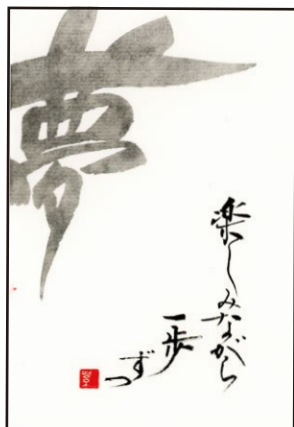 夢
楽しみながら
一歩
ずつ